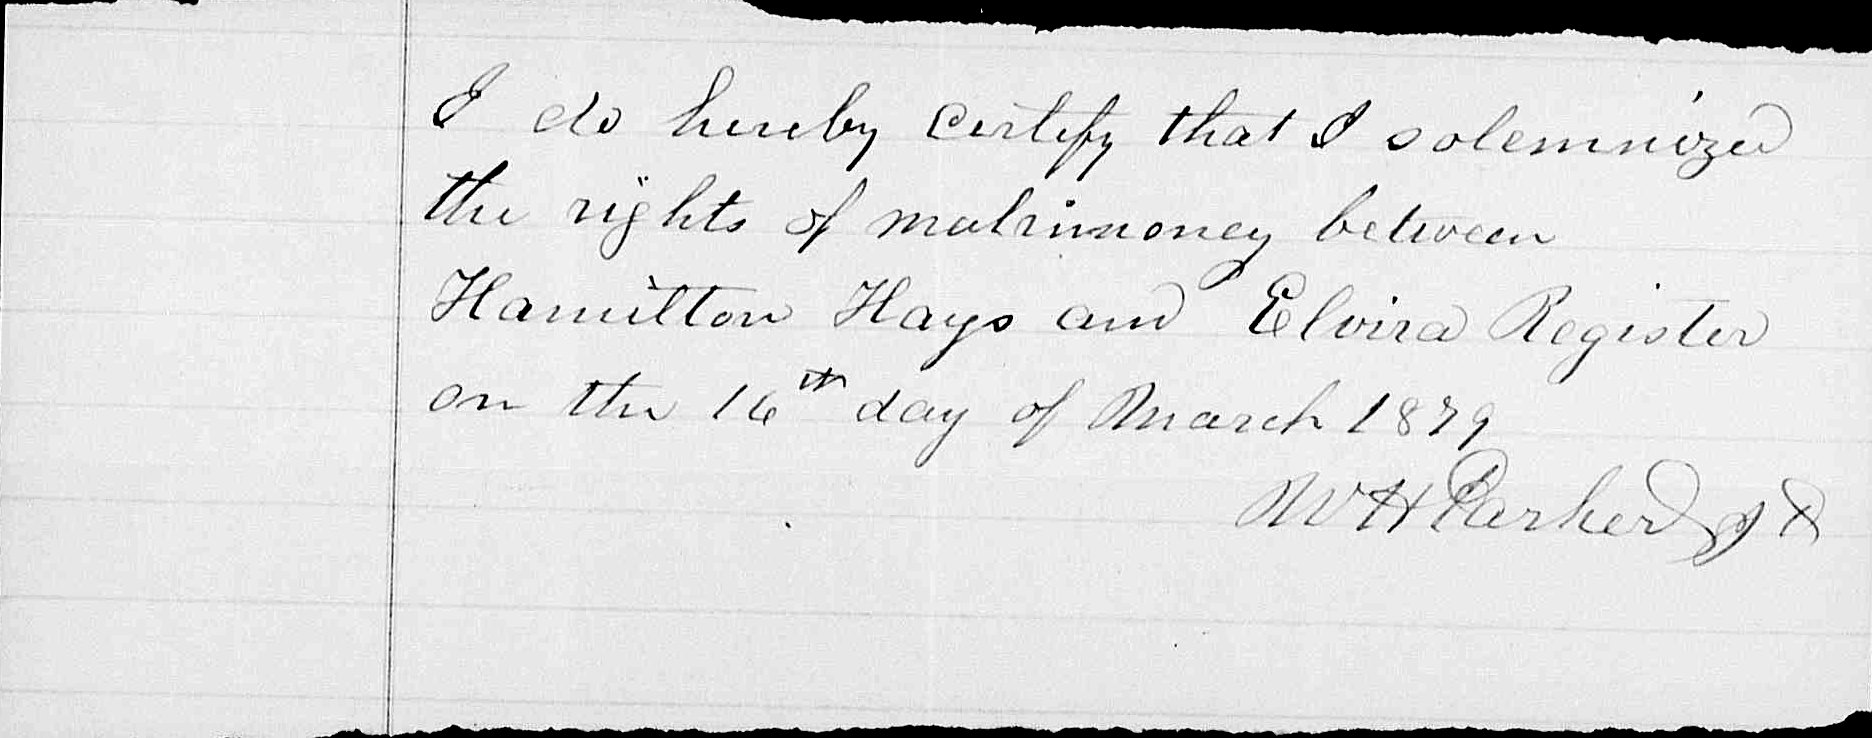 I do hereby certify that I solemnized
the rights of matrimoney between
Hamilton Hays and Elvira Register
on the 16th day of March 1879
W H Parker